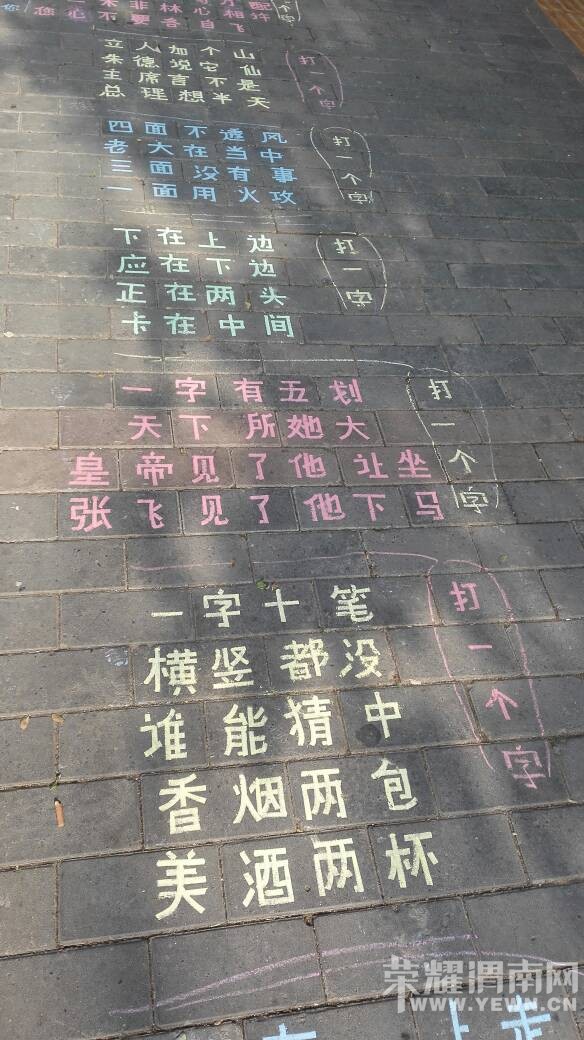 个字
立人加个山
朱德说它仙
主席言不是
总理想半天
打一个字
四面不透风
老大在当中
三面没有事
一面用火攻
打一个字
下在上边
应在下边
正在两头
卡在中间
打一字
一字有五划
天下所她大
皇帝见了他让坐
张飞见了他下马
打一个字
一字十笔
横竖都没
谁能猜中
香烟两包
美酒两杯
打一个字
上走
荣耀渭南网
WWW.YEWN.CN